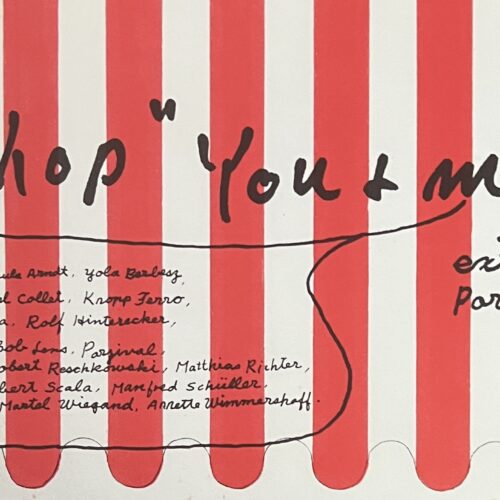 hop" "You + m
exi
Par
ula Arndt, Yola Berbesz,
el Collet, Kropp Ferro,
a, Rolf Hinterecker,
Bob Lens, Parzival,
obert Reschkowski, Matthias Richter,
bert Scala, Manfred Schüller,
Martel Wiegand, Annette Wimmershoff.